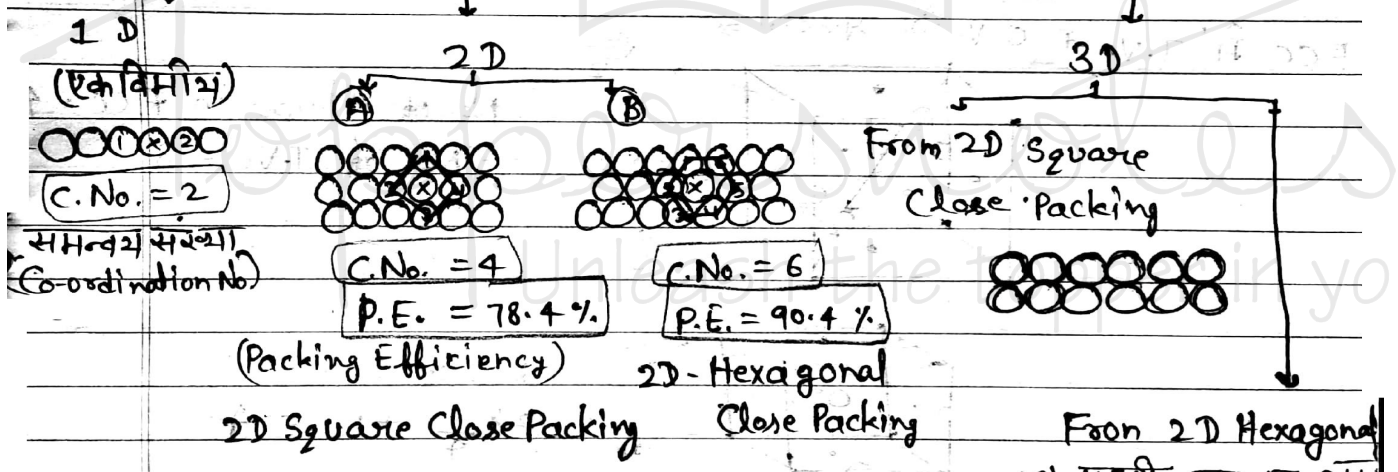 1 D
(एकविमीय)
1 x 2
C. No. = 2
समन्वय संख्या
(Co-ordination No.)
2D
A
B
C.No. = 4
P.E. = 78.4 %
(Packing Efficiency)
2D Square Close Packing
C.No. = 6
P.E. = 90.4 %
2D - Hexagonal
Close Packing
3D
From 2D Square
Close Packing
Fron 2D Hexagonal